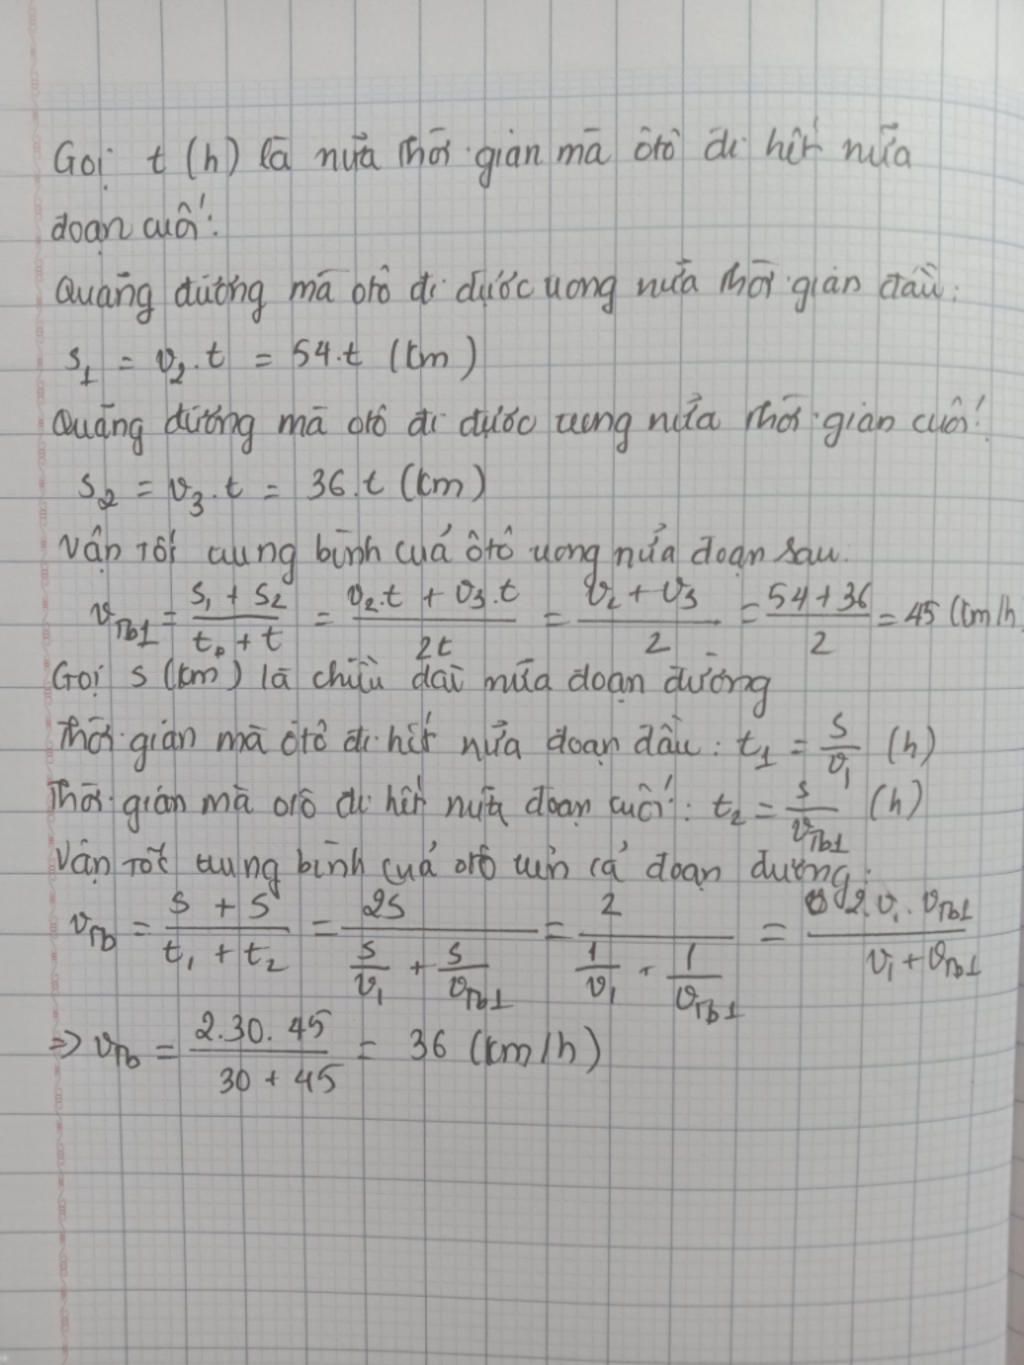 Gọi t (h) là nửa thời gian mà ôtô đi hết nửa
đoạn cuối:
Quãng đường mà ôtô đi được trong nửa thời gian đầu:
s₁ = v₂.t = 54.t (km)
Quãng đường mà ôtô đi được trong nửa thời gian cuối:
s₂ = v₃.t = 36.t (km)
Vận tốc trung bình của ôtô trong nửa đoạn sau.
v_Tb1 = (s₁ + s₂)/(t + t) = (v₂.t + v₃.t)/2t = (v₂ + v₃)/2 = (54 + 36)/2 = 45 (km/h
Gọi s (km) là chiều dài nửa đoạn đường
Thời gian mà ôtô đi hết nửa đoạn đầu: t₁ = s/v₁ (h)
Thời gian mà ôtô đi hết nửa đoạn cuối: t₂ = s/v_Tb1 (h)
Vận tốc trung bình của ôtô trên cả đoạn đường:
v_Tb = (s + s)/(t₁ + t₂) = 2s/(s/v₁ + s/v_Tb1) = 2/(1/v₁ + 1/v_Tb1) = 2.v₁.v_Tb1/(v₁ + v_Tb1)
⇒ v_Tb = (2.30.45)/(30 + 45) = 36 (km/h)